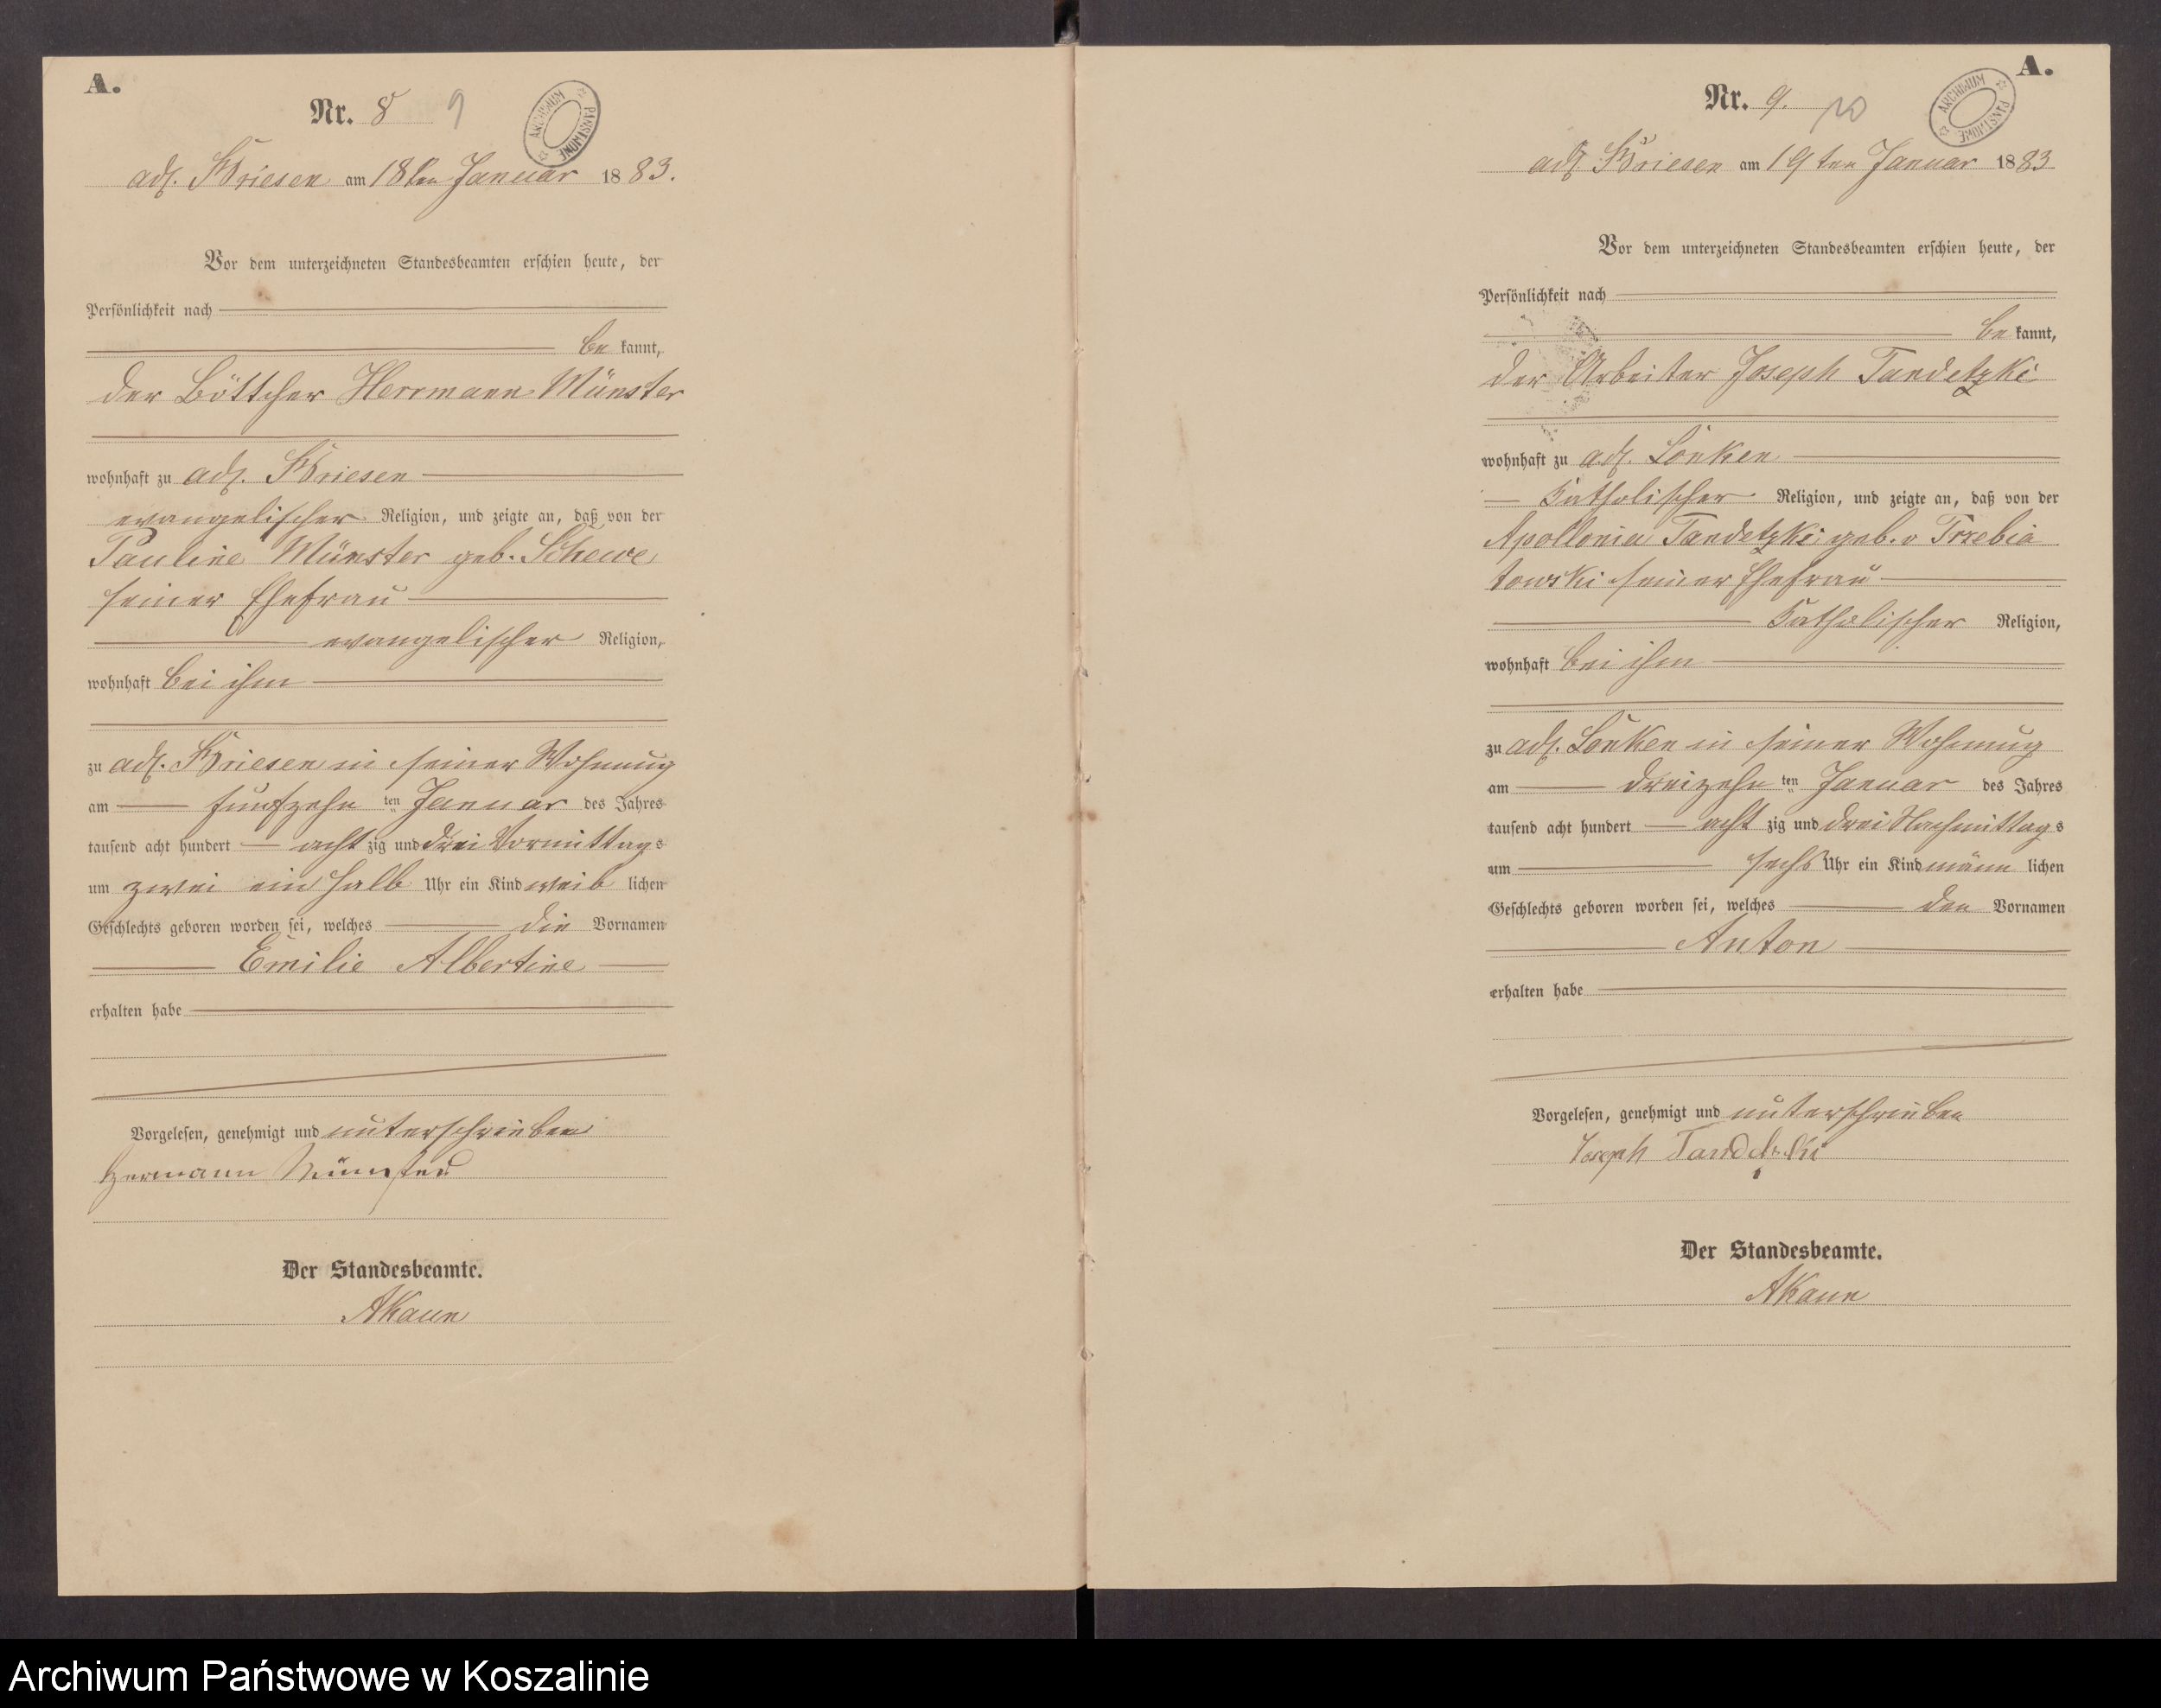 A.
Nr. 8 9
ARCHIWUM PAŃSTWOWE
adl. Briesen am 18ten Januar 1883.
Vor dem unterzeichneten Standesbeamten erschien heute, der
Persönlichkeit nach
be kannt,
der Böttcher Herrmann Münster
wohnhaft zu adl. Briesen
evangelischer Religion, und zeigte an, daß von der
Pauline Münster geb. Schewe
seiner Ehefrau
evangelischer Religion,
wohnhaft bei ihm
zu adl. Briesen in seiner Wohnung
am fünfzehn ten Januar des Jahres
tausend acht hundert acht zig und drei Vormittags
um zwei ein halb Uhr ein Kind weib lichen
Geschlechts geboren worden sei, welches die Vornamen
Emilie Albertine
erhalten habe
Vorgelesen, genehmigt und unterschrieben
Hermann Münster
Der Standesbeamte.
AKaun
A.
Nr. 9. 10
ARCHIWUM PAŃSTWOWE
adl. Briesen am 19ten Januar 1883
Vor dem unterzeichneten Standesbeamten erschien heute, der
Persönlichkeit nach
be kannt,
der Arbeiter Joseph Tandetzki
wohnhaft zu adl. Lonken
katholischer Religion, und zeigte an, daß von der
Apollonia Tandetzki geb. v Trzebia
towski seiner Ehefrau
katholischer Religion,
wohnhaft bei ihm
zu adl. Lonken in seiner Wohnung
am dreizehn ten Januar des Jahres
tausend acht hundert acht zig und drei Nachmittags
um sechs Uhr ein Kind männ lichen
Geschlechts geboren worden sei, welches den Vornamen
Anton
erhalten habe
Vorgelesen, genehmigt und unterschrieben
Joseph Tandetzki
Der Standesbeamte.
AKaun
Archiwum Państwowe w Koszalinie